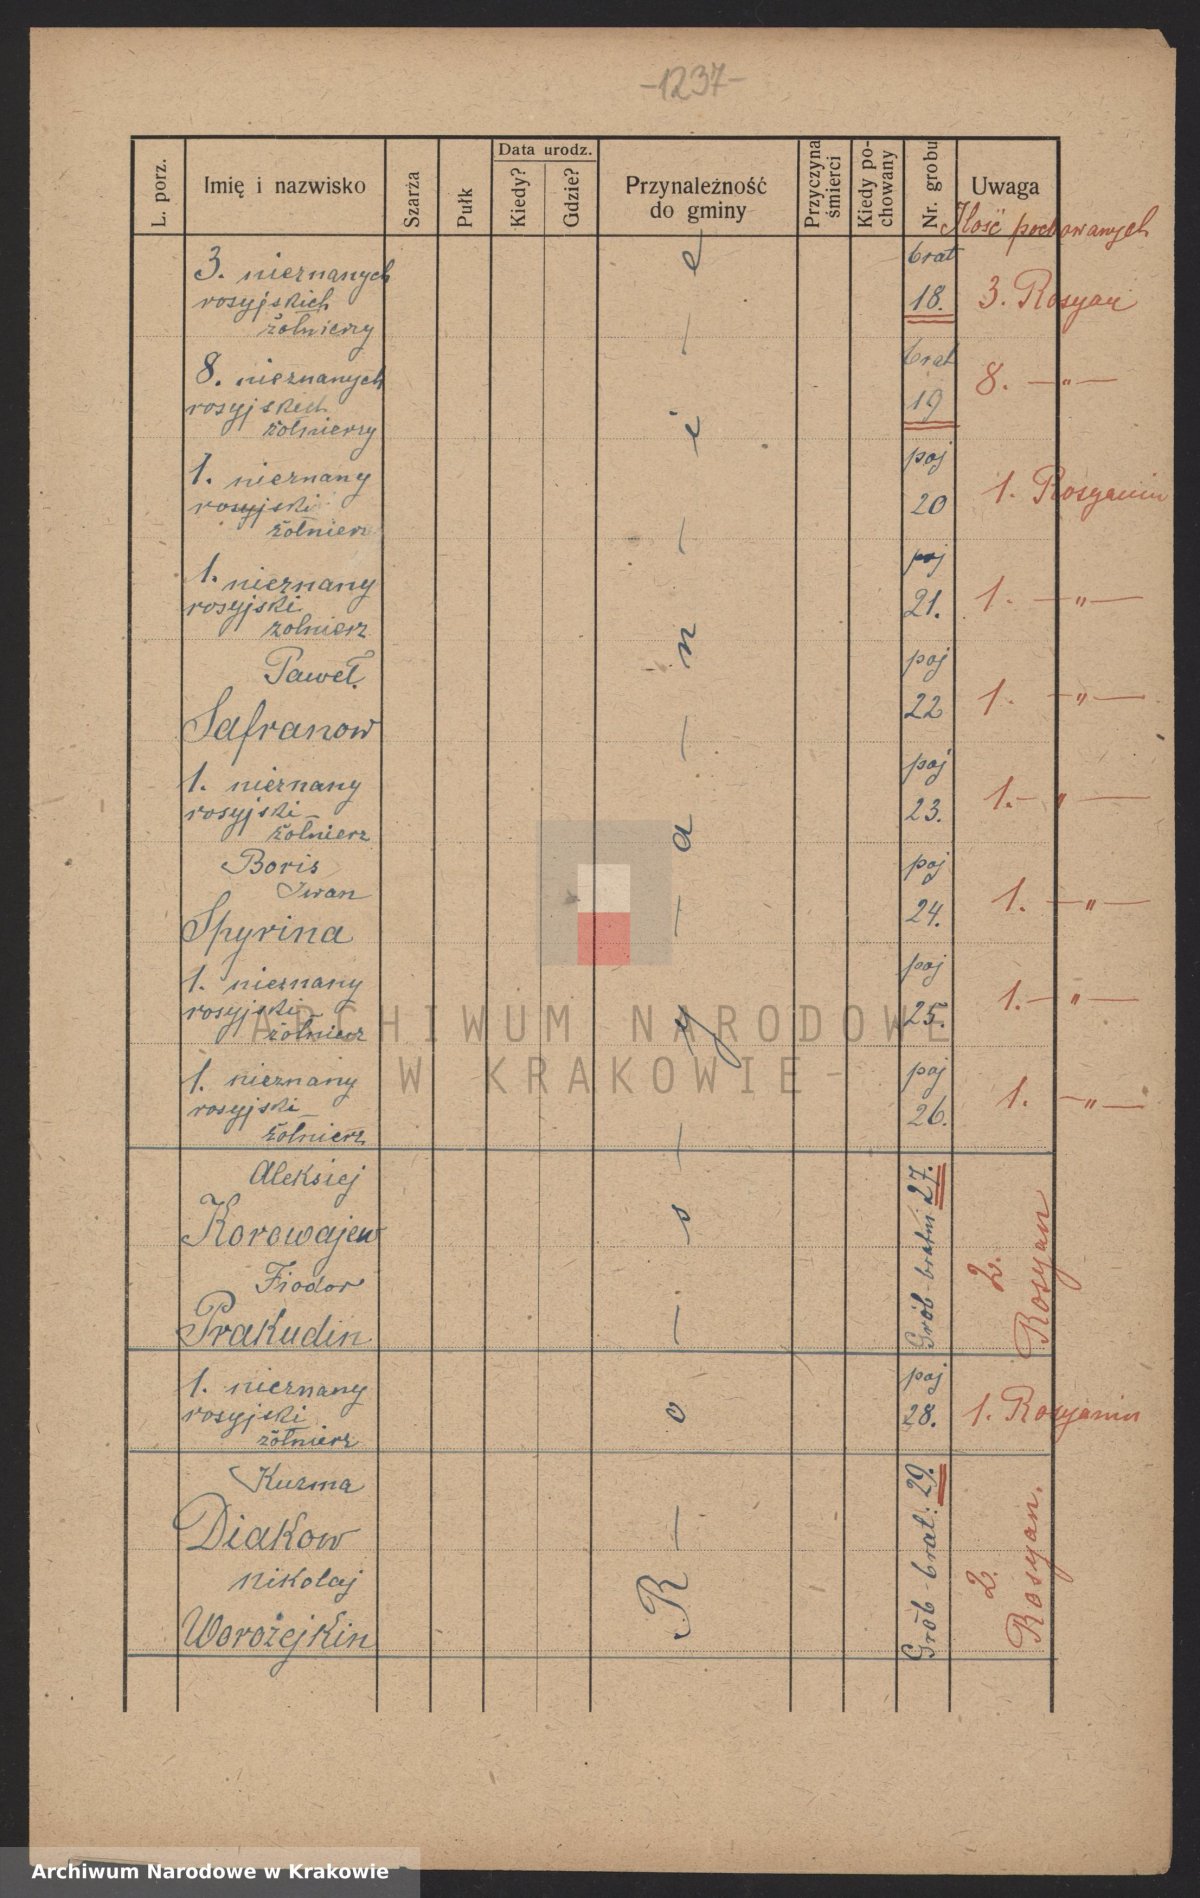 -1237-
L. porz.
Imię i nazwisko
Szarża
Pułk
Data urodz.
Kiedy?
Gdzie?
Przynależność
do gminy
Przyczyna
śmierci
Kiedy po-
chowany
Nr. grobu
Uwaga
Ilość pochowanych
3. nieznanych
rosyjskich
żołnierzy
brat
18.
3. Rosyan
8. nieznanych
rosyjskich
żołnierzy
brat
19
8. — " —
1. nieznany
rosyjski
żołnierz
poj
20
1. Rosyanin
1. nieznany
rosyjski
żolnierz
poj
21.
1. — " —
Paweł
Safranow
poj
22
1. — " —
1. nieznany
rosyjski
żolnierz
poj
23.
1. — " —
Boris
Iwan
Spyrina
poj
24.
1. — " —
1. nieznany
rosyjski
żolnierz
poj
25.
1. — " —
1. nieznany
rosyjski
żolnierz
poj
26.
1. — " —
Aleksiej
Korowajew
Fiodor
Prakudin
Grób-bratni 27.
2.
Rosyan
1. nieznany
rosyjski
żołnierz
poj
28.
1. Rosyanin
Kuzma
Diakow
Nikolaj
Worożejkin
Grób-brat: 29.
2.
Rosyan.
R — o — s — y — a — n — i — e
ARCHIWUM NARODOWE
W KRAKOWIE-
Archiwum Narodowe w Krakowie